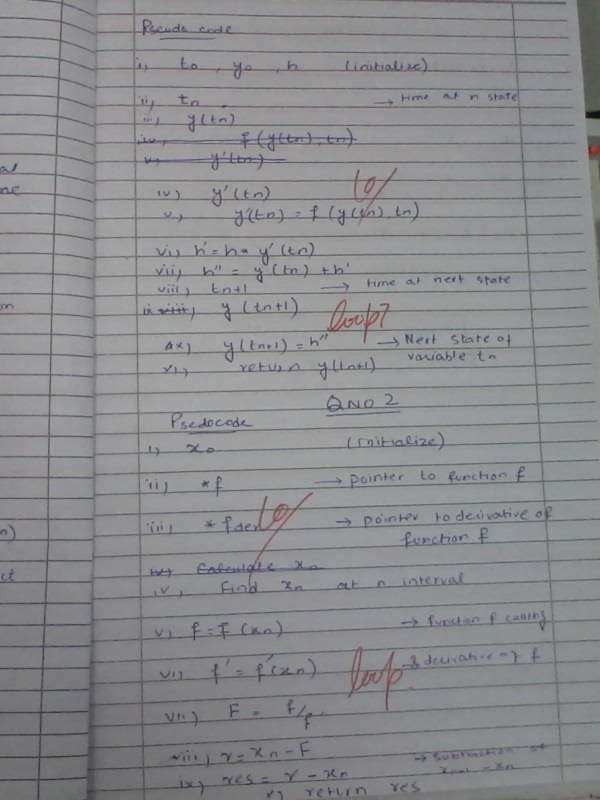 Pseudo code
i, to , yo , h (initialize)
ii, tn . → time at n state
iii, y(tn)
iv, f(y(tn), tn)
v, y'(tn)
iv) y'(tn)
v, y'(tn) = f (y(tn), tn)
vi, h' = h * y'(tn)
vii, h'' = y'(tn) + h'
viii, tn+1 → time at next state
ix viii, y (tn+1) loop?
x, y(tn+1) = h'' → Next state of
variable tn
xi, return y(tn+1)
QNO 2
Psedocode
i) xo (initialize)
ii, *f → pointer to function f
iii, * fder → pointer to derivative of
function f
iv) Calculate xn
iv, Find xn at n interval
v, f = f (xn) → function f calling
vi, f' = f'(xn) → derivative of f
loop
vii, F = f/f'
viii, r = xn - F
ix, res = r - xn → subtraction of
- xn
x, return res
al
n)
ct